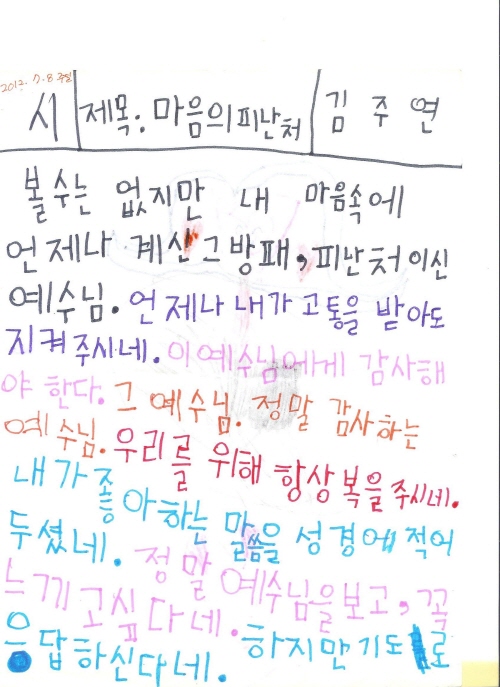 2012. 7. 8 주일
시 제목. 마음의피난처 김주연
볼수는 없지만 내 마음속에
언제나 계신그방패, 피난처이신
예수님. 언제나내가고통을 받아도
지켜주시네. 이예수님에게 감사해
야 한다. 그 예수님. 정말 감사하는
예수님. 우리를 위해 항상복을주시네.
내가좋아하는 말씀을 성경에적어
두셨네. 정말예수님을보고, 꼭
느끼고싶다네. 하지만기도로
응답하신다네.